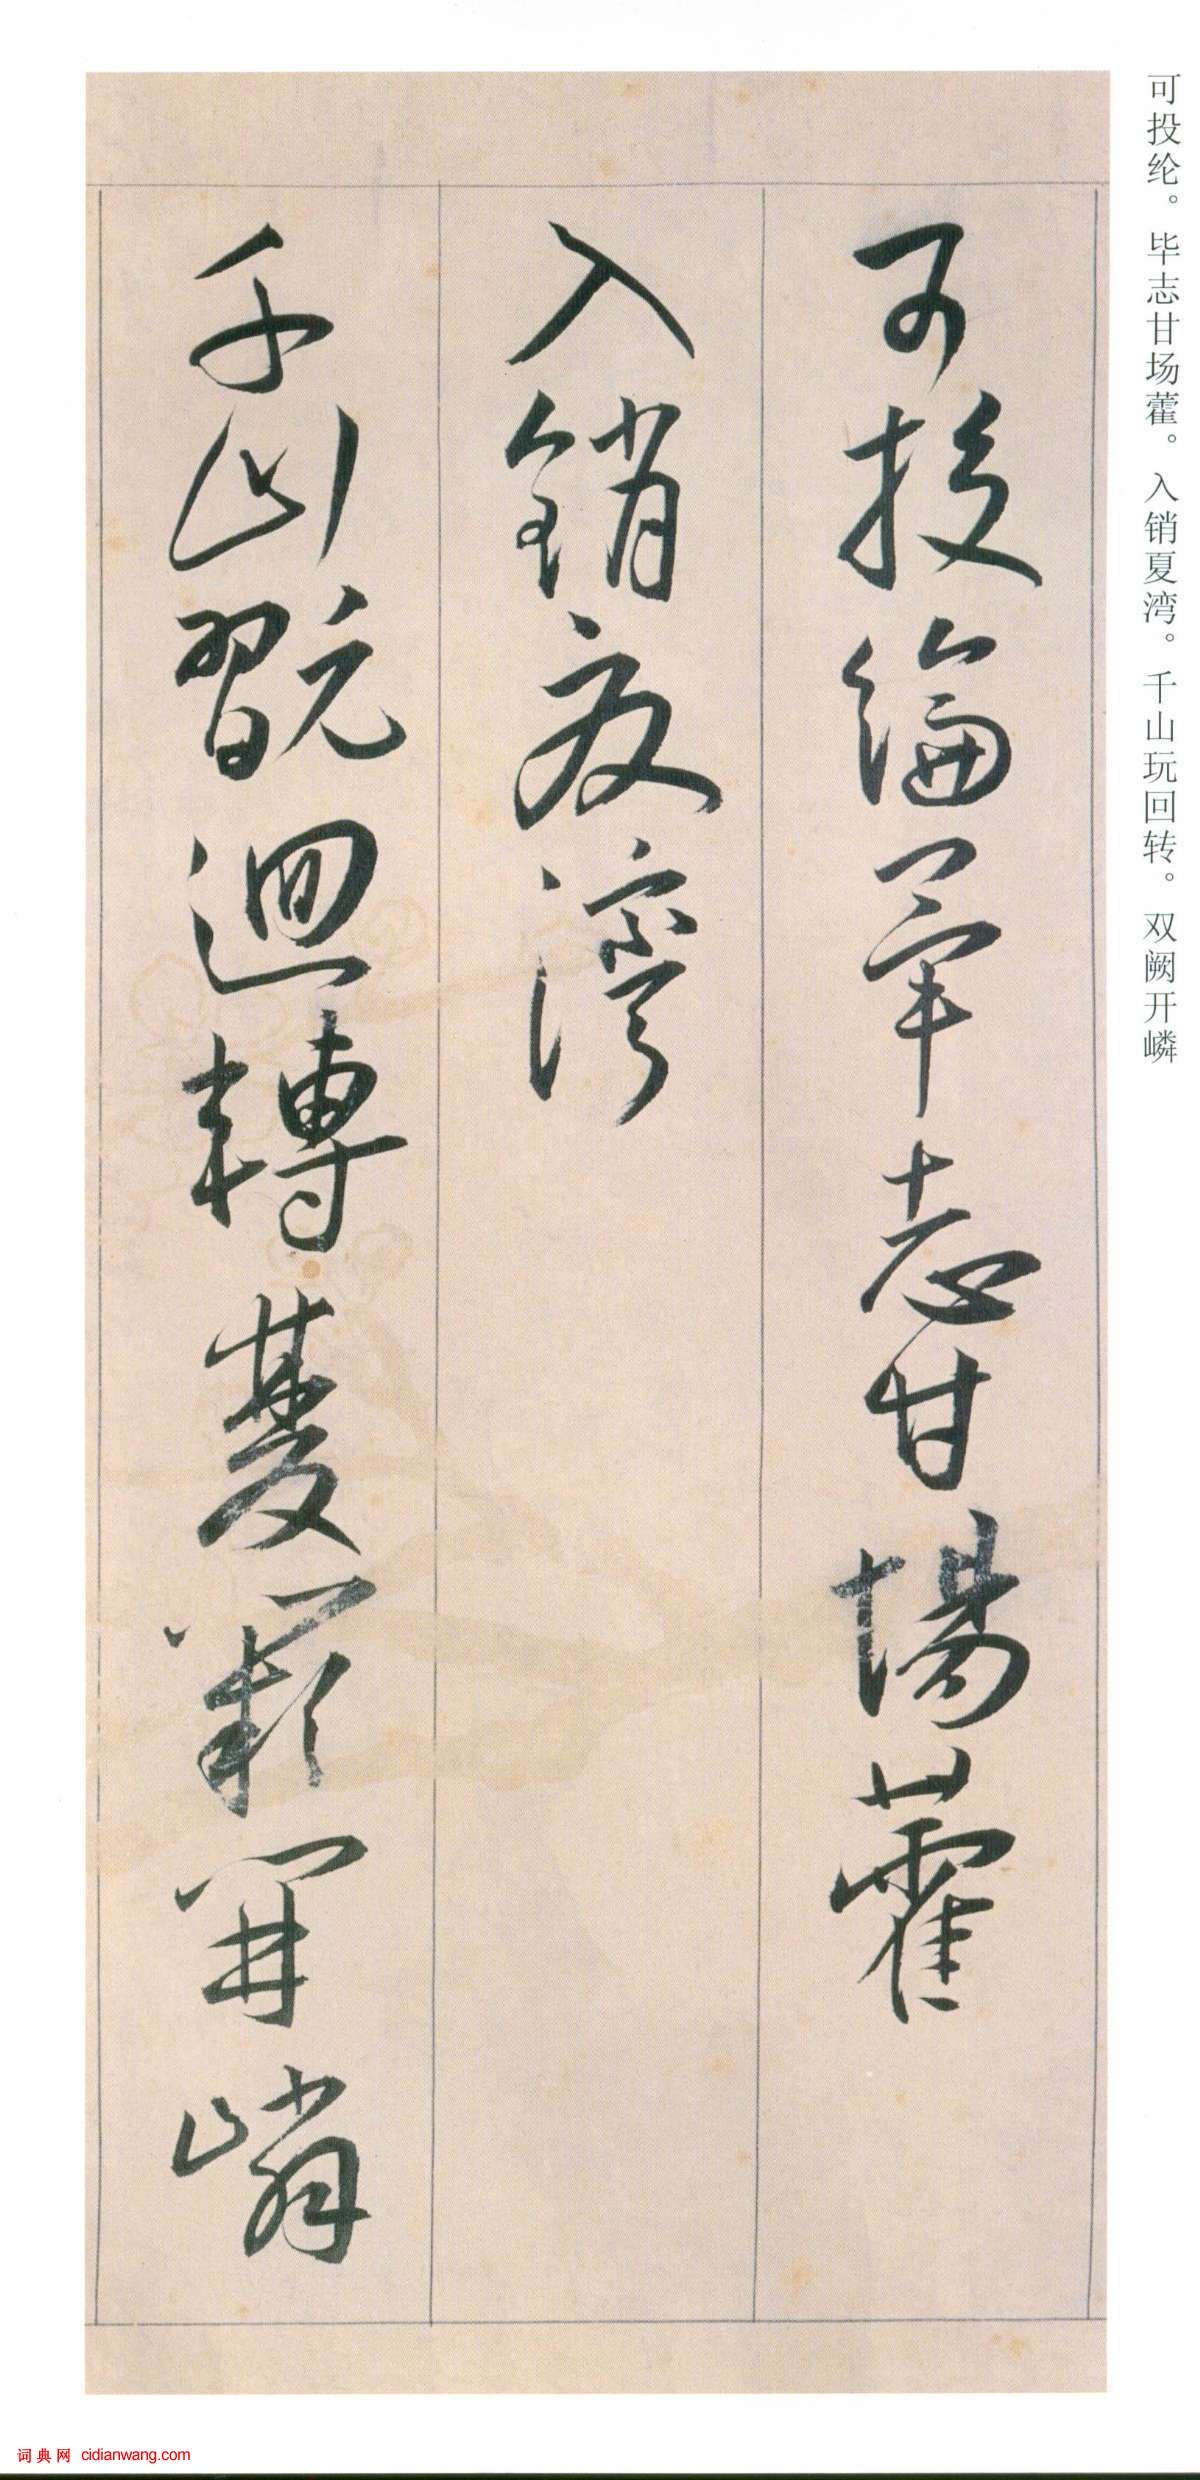 可投纶。毕志甘场藿。入销夏湾。千山玩回转。双阙开嶙
可投綸畢志甘場藿
入銷夏灣
千山翫迴轉雙闕開嶙
词典网 cidianwang.com